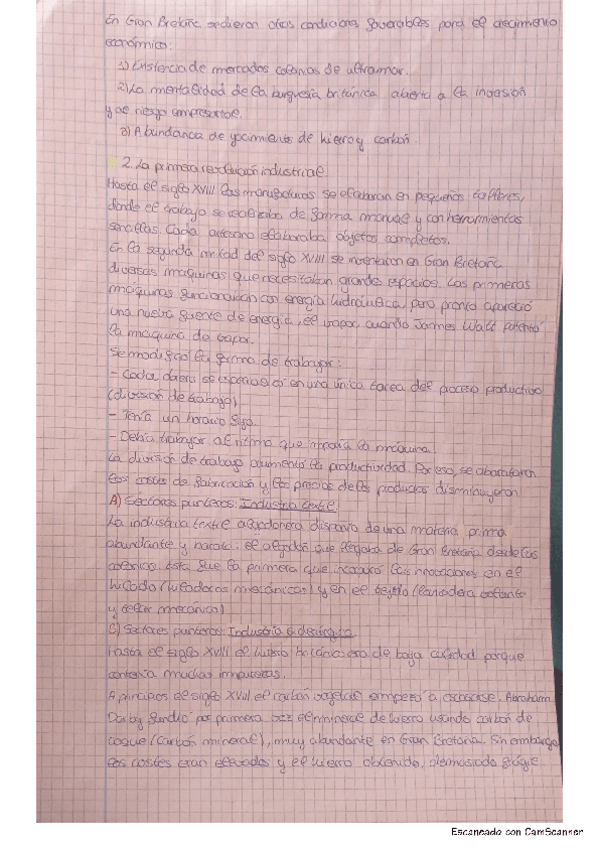 En Gran Bretaña se dieron otras condiciones favorables para el crecimiento
económico:
1) Existencia de mercados colonias de ultramar.
2) La mentalidad de la burguesía británica abierta a la inversión
y de riesgo empresarial.
3) Abundancia de yacimientos de hierro y carbón
2. La primera revolución industrial
Hasta el siglo XVIII las manufacturas se elaboraban en pequeños talleres,
donde el trabajo se realizaba de forma manual y con herramientas
sencillas. Cada artesano elaboraba objetos completos.
En la segunda mitad del siglo XVIII se inventaron en Gran Bretaña
diversas máquinas que necesitaban grandes espacios. Las primeras
máquinas funcionaban con energía hidráulica, pero pronto apareció
una nueva fuente de energía, el vapor, cuando James Watt patentó
la máquina de vapor.
Se modificó la forma de trabajar:
- Cada obrero se especializó en una única tarea del proceso productivo
(división de trabajo)
- Tenía un horario fijo.
- Debía trabajar al ritmo que imponía la máquina.
La división de trabajo aumentó la productividad. Por eso, se abarataron
los costes de fabricación y los precios de los productos disminuyeron
A) Sectores punteros: Industria textil
La industria textil algodonera disponía de una materia prima
abundante y barata: el algodón que llegaba de Gran Bretaña desde las
Ésta fue la primera que incorporó las innovaciones en el
hilado (hiladoras mecánicas) y en el tejido (lanzadera volante
y telar mecánico)
C) Sectores punteros: Industria siderúrgica
Hasta el siglo XVIII el hierro británico era de baja calidad porque
contenía muchas impurezas.
A principios el siglo XVIII el carbón vegetal empezó a escasear. Abraham
Darby fundió por primera vez el mineral de hierro usando carbón de
coque (carbón mineral), muy abundante en Gran Bretaña. Sin embargo
los costes eran elevados y el hierro obtenido, demasiado frágil.
Escaneado con CamScanner